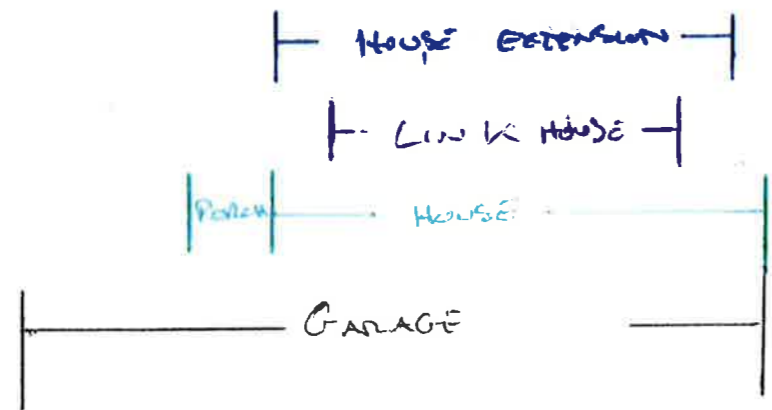 HOUSE EXTENSION
LINK HOUSE
PORCH HOUSE
GARAGE